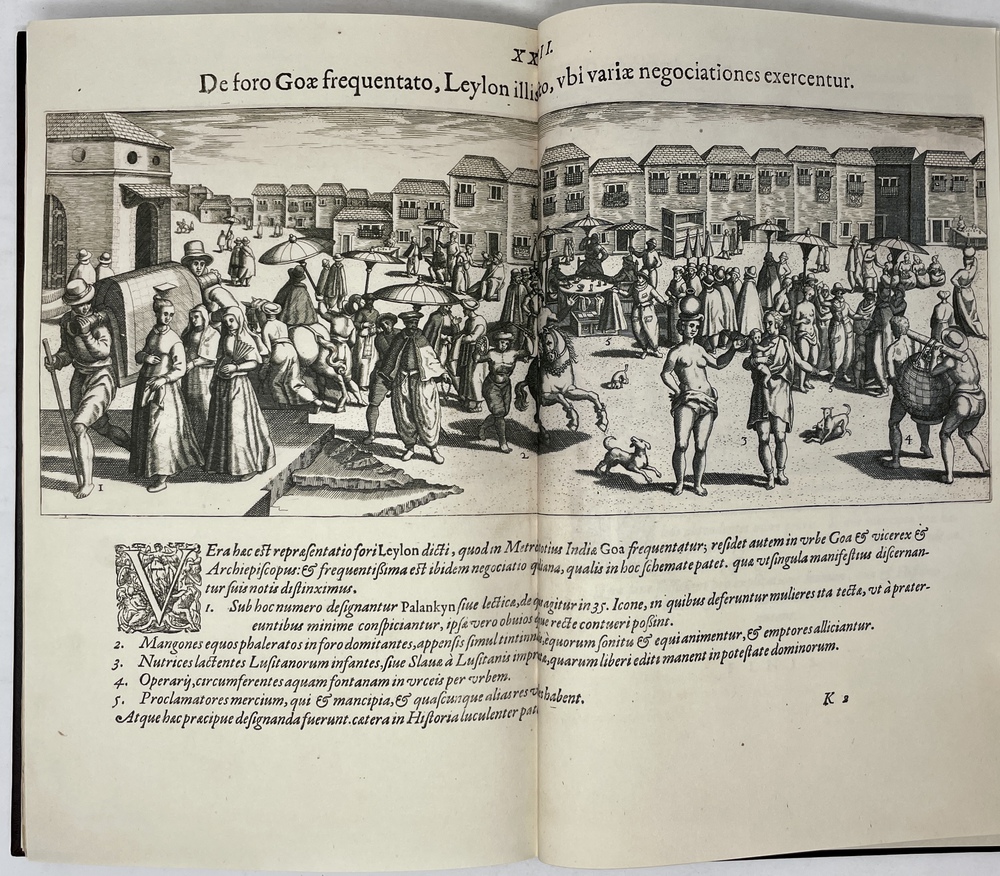 XXII.
De foro Goæ frequentato, Leylon illic dicto, vbi variæ negociationes exercentur.
1
2
3
4
5
VEra hac est repræsentatio fori Leylon dicti, quod in Metropotius India Goa frequentatur; residet autem in vrbe Goa & vicerex &
Archiepiscopus: & frequentißima est ibidem negociatio quotidiana, qualis in hoc schemate patet. quæ vt singula manifestius discernan-
tur suis notis distinximus.
1. Sub hoc numero designantur Palankyn siue lecticæ, de quagitur in 35. Icone, in quibus deferuntur mulieres ita tectæ, vt à præter-
euntibus minime conspiciantur, ipsæ vero obuios que recte contueri poßint.
2. Mangones equos phaleratos in foro domitantes, appensis simul tintinna, equorum sonitu & equi animentur, & emptores alliciantur.
3. Nutrices lactentes Lusitanorum infantes, siue Slauæ à Lusitanis impr, quarum liberi editi manent in potestate dominorum.
4. Operarij, circumferentes aquam fontanam in vrceis per vrbem.
5. Proclamatores mercium, qui & mancipia, & quascunque alias res habent.
Atque hæc præcipue designanda fuerunt. cætera in Historia luculenter
K 2